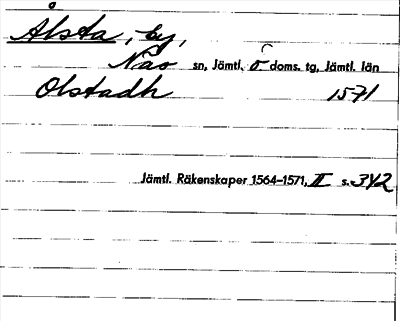 Ålsta, by,
Näs sn, Jämtl. ö. doms. tg, Jämtl. län
Olstadh 1571
Jämtl. Räkenskaper 1564-1571, II s. 342